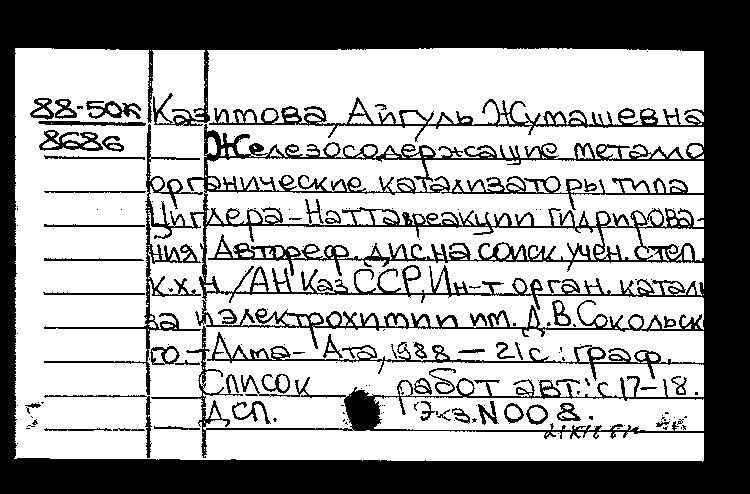 88-50к Казимова, Айгуль Жумашевна
8686 Железосодержащие металло
органические катализаторы типа
Циглера-Натта в реакции гидрирова-
ния: Автореф. дис. на соиск. учен. степ.
к.х.н. /АН КазССР, Ин-т орган. катали
за и электрохимии им. Д.В. Сокольско
го.-Алма-Ата, 1988. - 21с.: граф.
Список работ авт.: с.17-18.
ДСП. Экз. N008.